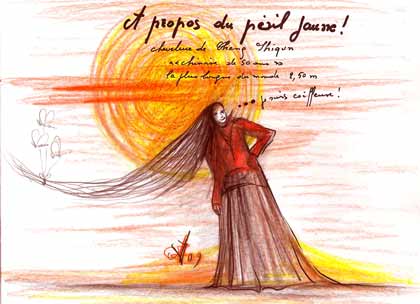 A propos du péril Jaune!
chevelure de
«chinoise de 50 ans»
la plus longue du monde 2,50 m
... j'suis coiffeuse!
09